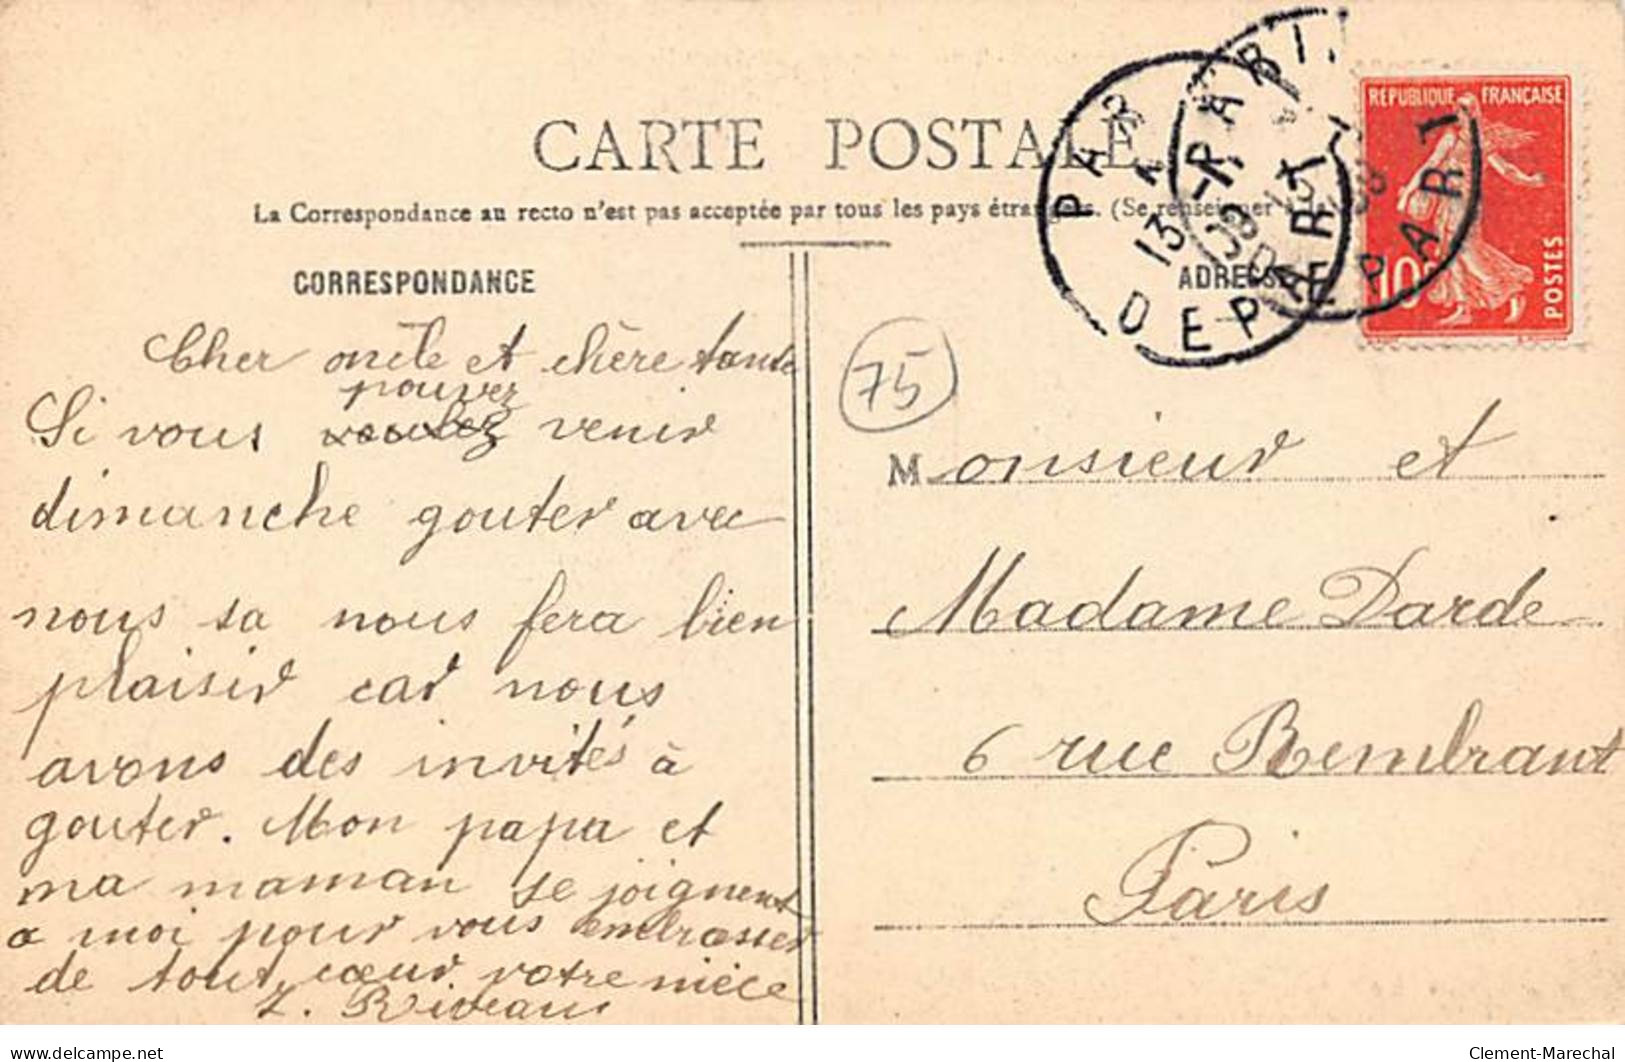 CARTE POSTALE
La Correspondance au recto n'est pas acceptée par tous les pays étrangers. (Se renseigner
CORRESPONDANCE
Cher oncle et chère tante
pouvez
Si vous voulez venir
dimanche gouter avec
nous sa nous fera bien
plaisir car nous
avons des invités à
gouter. Mon papa et
ma maman se joignent
a moi pour vous embrasser
de tout cœur votre nièce
ADRESSE
75
Monsieur et
Madame Darde
6 rue Rembrant
Paris
REPUBLIQUE FRANÇAISE
10
POSTES
PARIS
13
DEPART
PARIS
DEPART
www.delcampe.net
Clement-Marechal